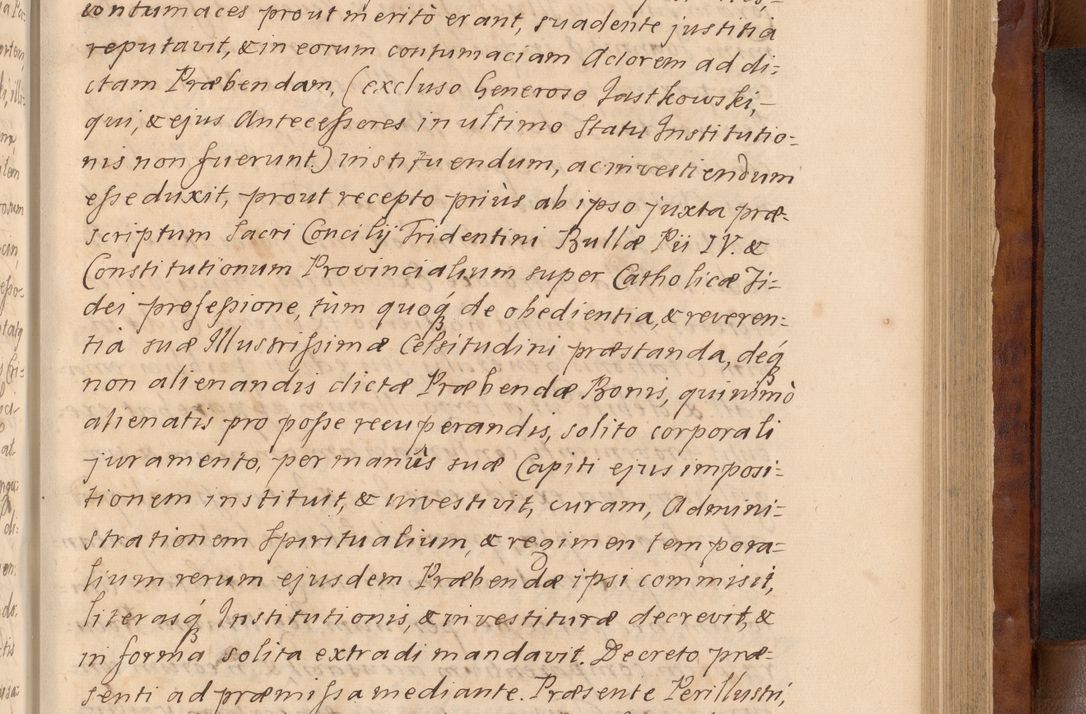 contumaces prout meritò erant, suadente justitia
reputavit, & in eorum contumaciam Actorem ad di=
ctam Præbendam, (excluso Generoso Jastkowski,
qui, & ejus Antecessores in ultimo Statu Institutio=
nis non fuerunt) instituendum, ac investiendum
esse duxit, prout recepto priùs ab ipso juxta præ=
scriptum Sacri Concilij Tridentini Bullæ Pii IV. &
Constitutionum Provincialium super Catholicæ Fi=
dei professione, tùm quoq́ de obedientia, & reveren=
tia suæ Illustrissimæ Celsitudini præstanda, deq́
non alienandis dictæ Præbendæ Bonis, quinimò
alienatis pro posse recuperandis, solito corporali
juramento, per manûs suæ Capiti ejus imposi=
tionem instituit, & investivit, curam, Admini=
strationem Spiritualium, & regimen tempora=
lium rerum ejusdem Præbendæ ipsi commisit,
literasq́ Institutionis, & investituræ decrevit, &
in forma solita extradi mandavit. Decreto præ=
senti ad præmissa mediante. Præsente Perillustri,